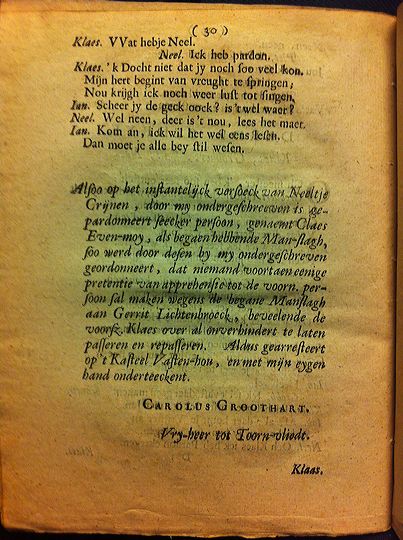 ( 30 )
Klaes. VVat hebje Neel.
Neel. Ick heb pardon.
Klaes. 'k Docht niet dat jy noch soo veel kon.
Mijn hert begint van vreught te springen;
Nou krijgh ick noch weer lust tot singen.
Ian. Scheer jy de geck oock? is't wel waer?
Neel. Wel neen, deer is't nou, lees het maer.
Ian. Kom an, ick wil het wel eens lesen.
Dan moet je alle bey stil wesen.
Alsoo op het instantelijck versoeck van Neeltje
Crijnen, door my ondergeschreeven is ge-
pardonneert seecker persoon, genaemt Claes
Even-moy, als begaen hebbende Man-slagh,
soo werd door desen by my ondergeschreven
geordonneert, dat niemand voortaen eenige
pretentie van apprehensie tot de voorn. per-
soon sal maken wegens de begane Manslagh
aan Gerrit Lichtenbroeck, beveelende de
voorsz. Klaes over al onverhindert te laten
passeren en repasseren. Aldus gearresteert
op 't Kasteel Vasten-hou, en met mijn eygen
hand onderteeckent.
CAROLUS GROOTHART.
Vry-heer tot Toorn-vliedt.
Klaas.